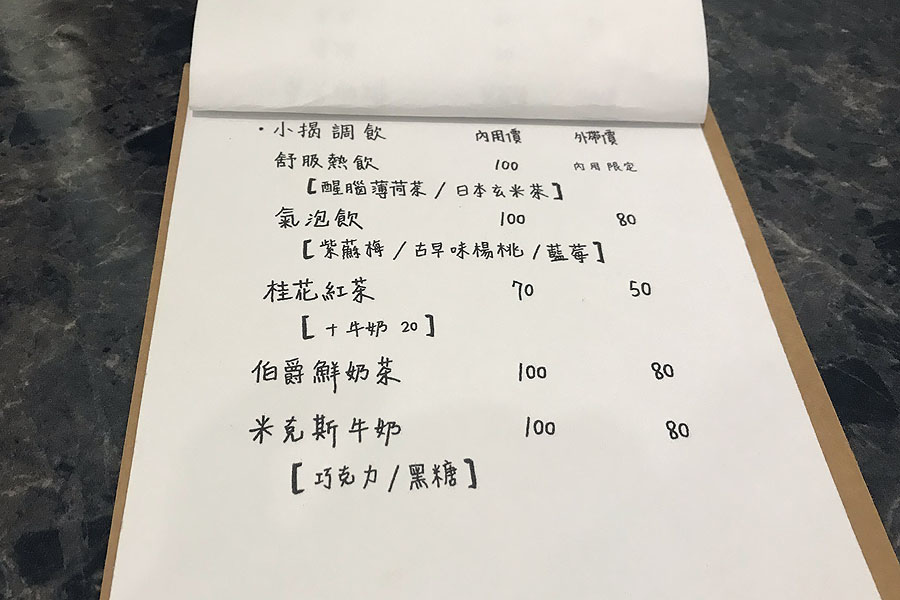 ·小揭調飲 內用價 外帶價
舒服熱飲 100 內用限定
[醒腦薄荷茶/日本玄米茶]
氣泡飲 100 80
[紫蘇梅/古早味楊桃/藍莓]
桂花紅茶 70 50
[+牛奶 20]
伯爵鮮奶茶 100 80
米克斯牛奶 100 80
[巧克力/黑糖]